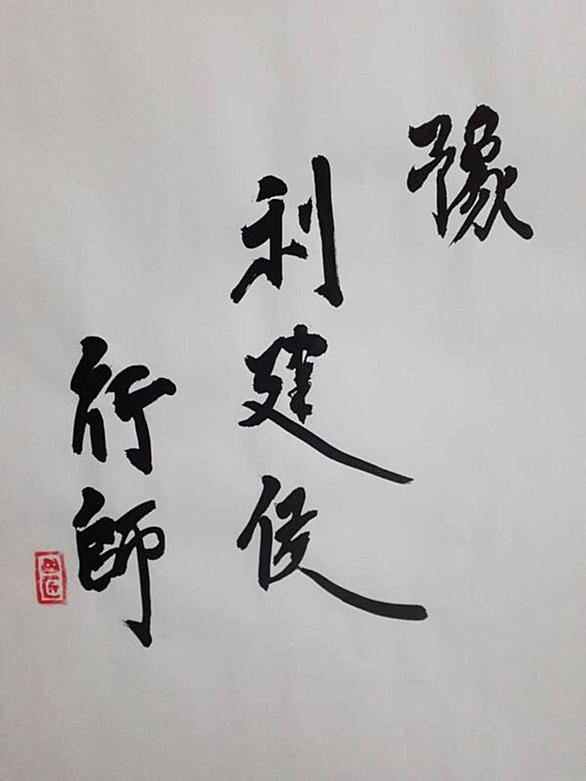 豫
利建侯
行師